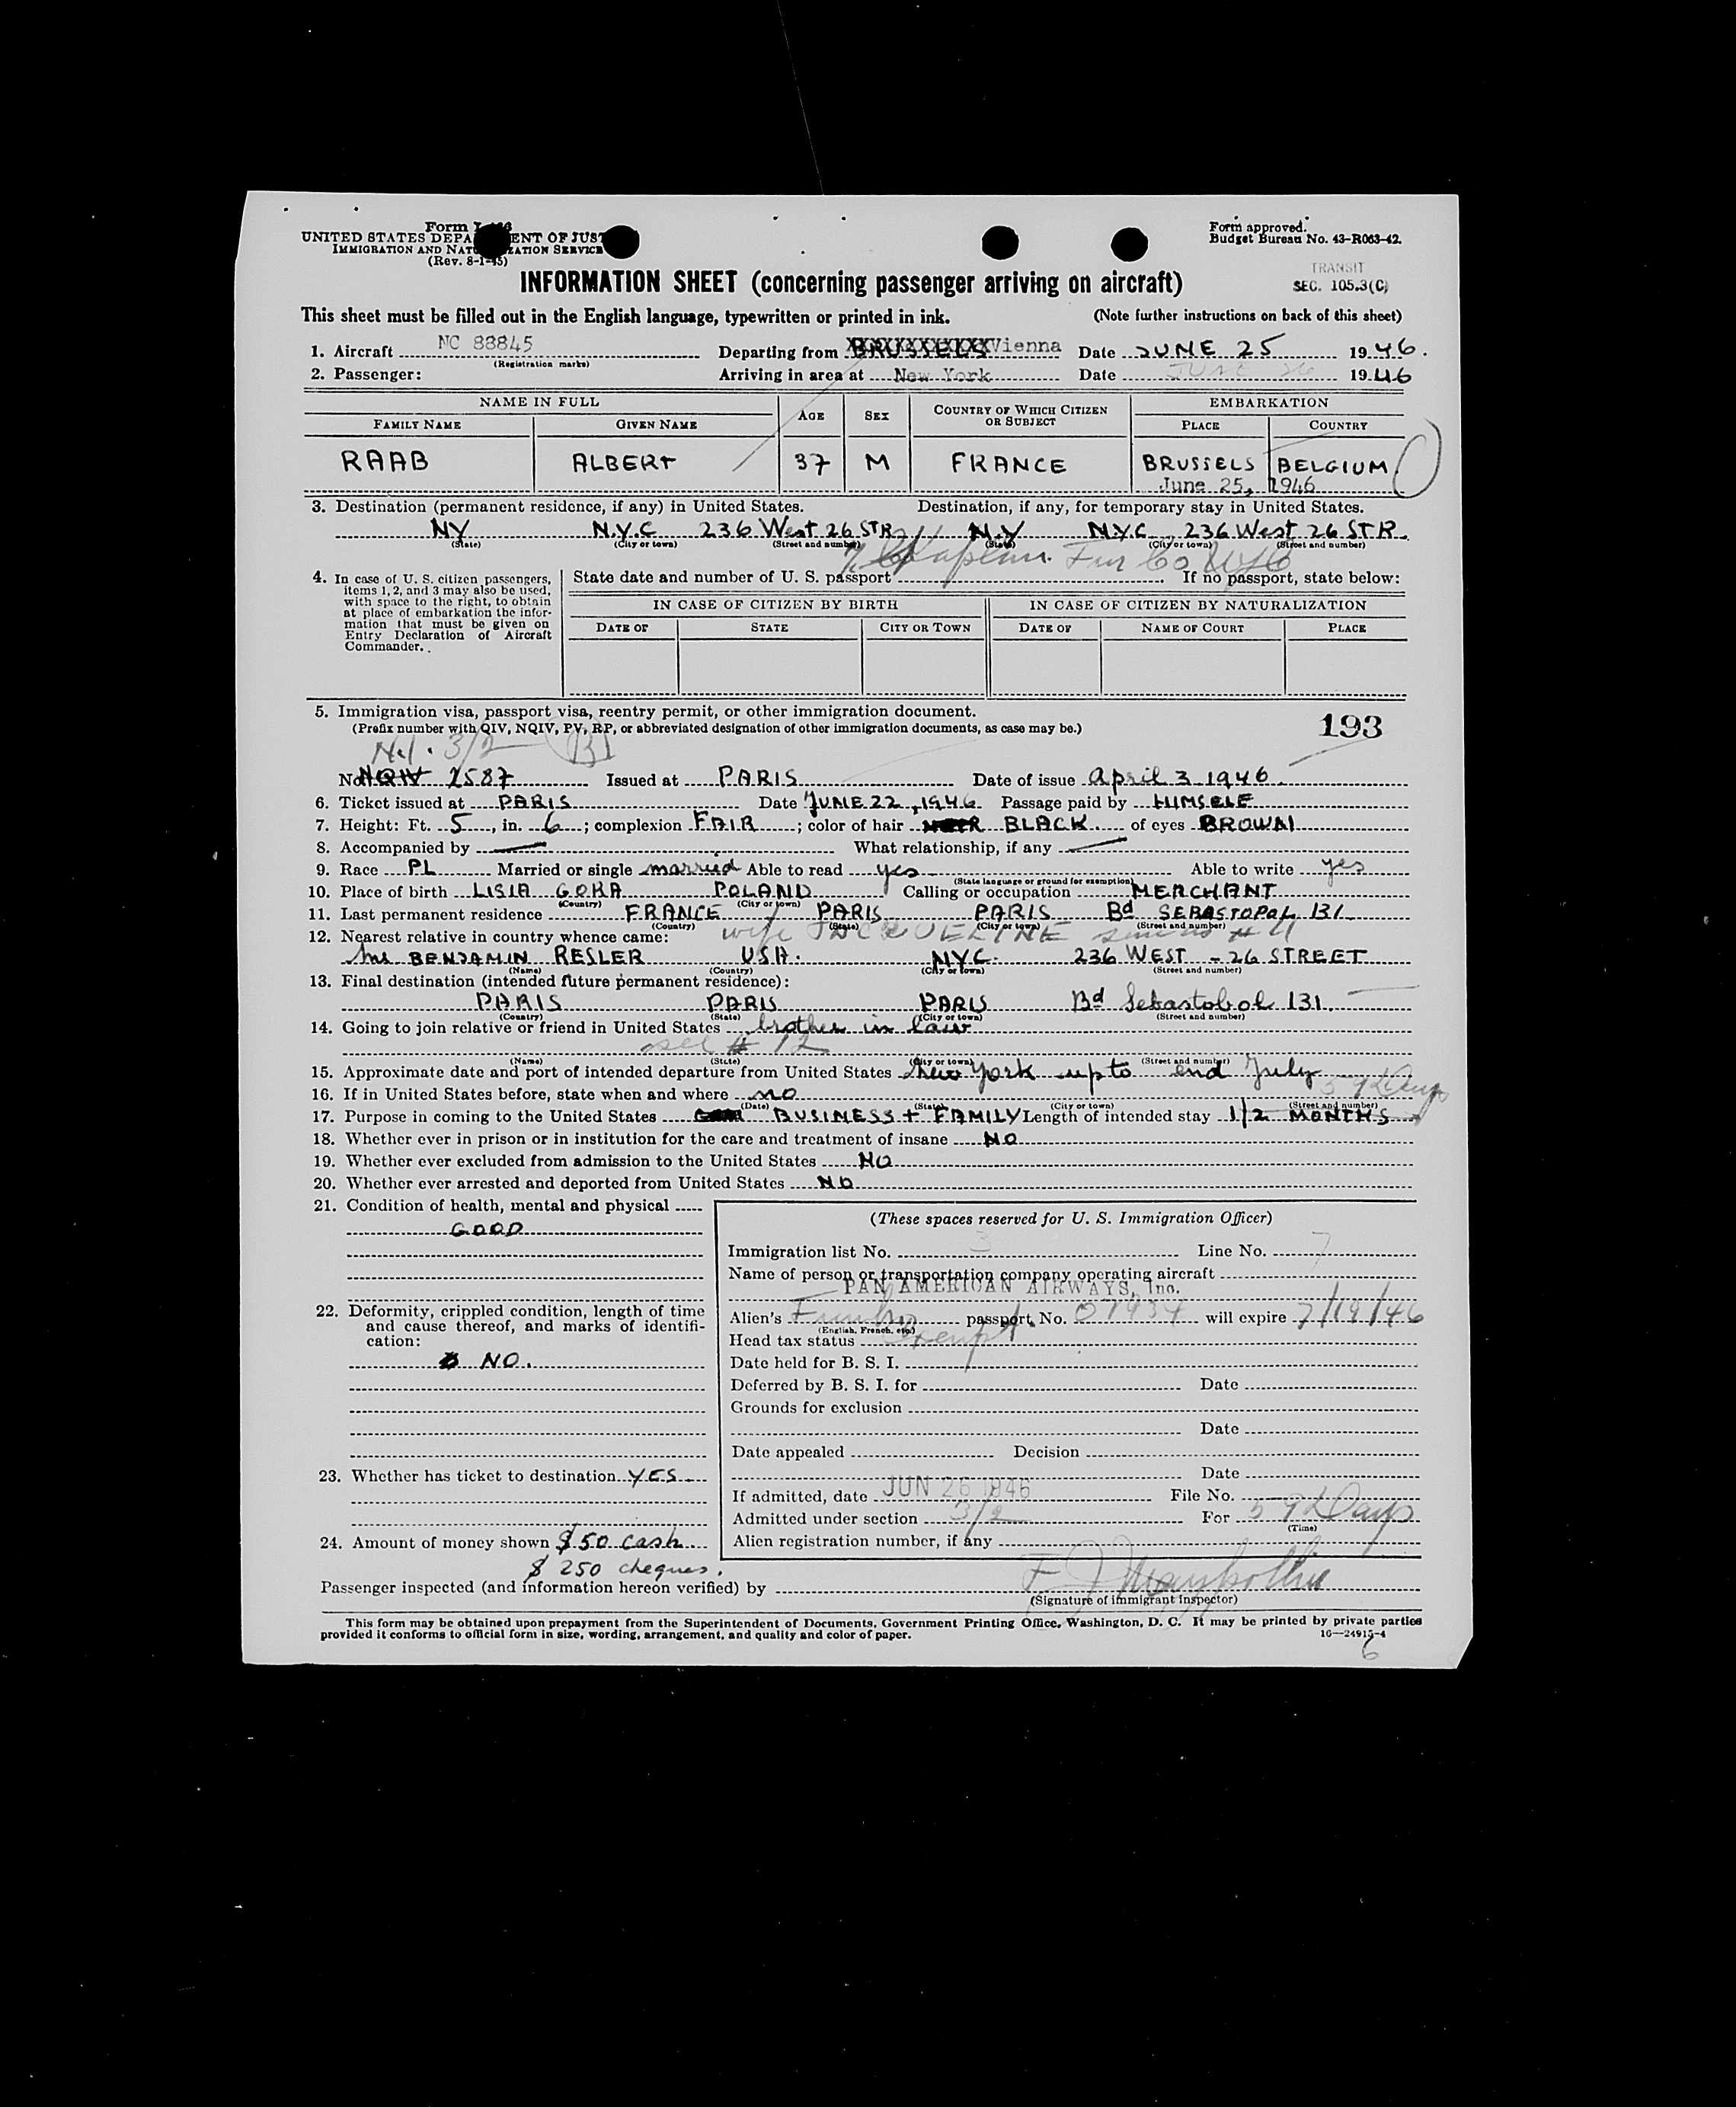 Form I-466
UNITED STATES DEPARTMENT OF JUSTICE
IMMIGRATION AND NATURALIZATION SERVICE
(Rev. 8-1-45)
Form approved.
Budget Bureau No. 43-R063-42.
TRANSIT
SEC. 105.3(C)
INFORMATION SHEET (concerning passenger arriving on aircraft)
This sheet must be filled out in the English language, typewritten or printed in ink. (Note further instructions on back of this sheet)
1. Aircraft NC 88845 Departing from BRUSSELS Vienna Date JUNE 25 1946.
(Registration marks)
2. Passenger: Arriving in area at New York Date JUNE 26 1946
NAME IN FULL AGE SEX COUNTRY OF WHICH CITIZEN OR SUBJECT EMBARKATION
FAMILY NAME GIVEN NAME PLACE COUNTRY
RAAB ALBERT 37 M FRANCE BRUSSELS BELGIUM
June 25, 1946
3. Destination (permanent residence, if any) in United States. Destination, if any, for temporary stay in United States.
NY N.Y.C 236 West 26 STR N.Y N.Y.C 236 West 26 STR.
(State) (City or town) (Street and number) (State) (City or town) (Street and number)
Kaplan Fur Co NYC
4. In case of U. S. citizen passengers, items 1, 2, and 3 may also be used, with space to the right, to obtain at place of embarkation the information that must be given on Entry Declaration of Aircraft Commander.
State date and number of U. S. passport If no passport, state below:
IN CASE OF CITIZEN BY BIRTH IN CASE OF CITIZEN BY NATURALIZATION
DATE OF STATE CITY OR TOWN DATE OF NAME OF COURT PLACE
5. Immigration visa, passport visa, reentry permit, or other immigration document. 193
(Prefix number with QIV, NQIV, PV, RP, or abbreviated designation of other immigration documents, as case may be.)
3/2 B1
No. NQIV 2587 Issued at PARIS Date of issue April 3 1946
6. Ticket issued at PARIS Date JUNE 22, 1946 Passage paid by HIMSELF
7. Height: Ft. 5, in. 6; complexion FAIR; color of hair BLACK of eyes BROWN
8. Accompanied by — What relationship, if any —
9. Race PL Married or single married Able to read yes Able to write yes
(State language or ground for exemption)
10. Place of birth LISIA GORA POLAND Calling or occupation MERCHANT
(Country) (City or town)
11. Last permanent residence FRANCE PARIS PARIS Bd SEBASTOPOL 131
(Country) (State) (City or town) (Street and number)
12. Nearest relative in country whence came: wife JACQUELINE same as # 11
Mr BENJAMIN RESLER USA. NYC. 236 WEST - 26 STREET
(Name) (Country) (City or town) (Street and number)
13. Final destination (intended future permanent residence):
PARIS PARIS PARIS Bd Sebastobol 131.
(Country) (State) (City or town) (Street and number)
14. Going to join relative or friend in United States brother in law
see # 12
(Name) (State) (City or town) (Street and number)
15. Approximate date and port of intended departure from United States New York up to end July
16. If in United States before, state when and where no 59 Days
(Date) (State) (City or town) (Street and number)
17. Purpose in coming to the United States BUSINESS + FAMILY Length of intended stay 1/2 MONTHS
18. Whether ever in prison or in institution for the care and treatment of insane NO
19. Whether ever excluded from admission to the United States NO
20. Whether ever arrested and deported from United States NO
21. Condition of health, mental and physical
GOOD
22. Deformity, crippled condition, length of time and cause thereof, and marks of identification:
NO.
23. Whether has ticket to destination YES
24. Amount of money shown $50 cash
$ 250 cheques.
(These spaces reserved for U. S. Immigration Officer)
Immigration list No. 3 Line No. 7
Name of person or transportation company operating aircraft
PAN AMERICAN AIRWAYS, Inc.
Alien's French passport No. 01934 will expire 7/19/46
(English, French, etc.)
Head tax status Exempt
Date held for B. S. I.
Deferred by B. S. I. for Date
Grounds for exclusion
Date
Date appealed Decision
Date
If admitted, date JUN 26 1946 File No.
Admitted under section 3/2 For 59 Days
(Time)
Alien registration number, if any
Passenger inspected (and information hereon verified) by
(Signature of immigrant inspector)
This form may be obtained upon prepayment from the Superintendent of Documents, Government Printing Office, Washington, D. C. It may be printed by private parties
provided it conforms to official form in size, wording, arrangement, and quality and color of paper. 16—24915-4
6